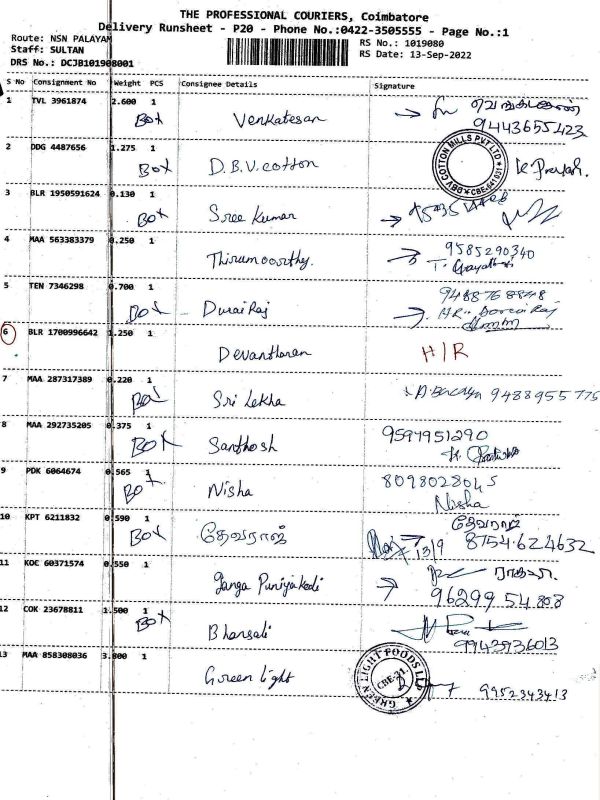 THE PROFESSIONAL COURIERS, Coimbatore
Delivery Runsheet - P20 - Phone No.:0422-3505555 - Page No.:1
Route: NSN PALAYAM
Staff: SULTAN
DRS No.: DCJB101908001
RS No.: 1019080
RS Date: 13-Sep-2022
S No Consignment No Weight PCS Consignee Details Signature
1 TVL 3961874 2.600 1 Box Venkatesan
9443655423
2 DDG 4487656 1.275 1 Box D.B.V. cotton
DBV COTTON MILLS PVT LTD
3 BLR 1950591624 0.130 1 Box Sree Kumar
4 MAA 563383379 0.250 1 Thirumoorthy. 9585290340
T. Gayathri
5 TEN 7346298 0.700 1 Box Durai Raj
6 BLR 1700996642 1.250 1 Devantharan H/R
7 MAA 287317389 0.220 1 Box Sri Lekha 9488955775
8 MAA 292735205 0.375 1 Box Santhosh 9597951290
9 PDK 6064674 0.565 1 Box Nisha 8098028045
Nisha
10 KPT 6211832 0.590 1 Box தேவராஜ் தேவராஜ்
13/9 8754.624632
11 KOC 60371574 0.550 1 Ganga Puniyakodi
96299 54808
12 COK 23678811 1.500 1 Box Bhansali
9943936013
13 MAA 858308036 3.800 1 Green light
GREEN LIGHT FOODS LLP CBE-31
9952343413